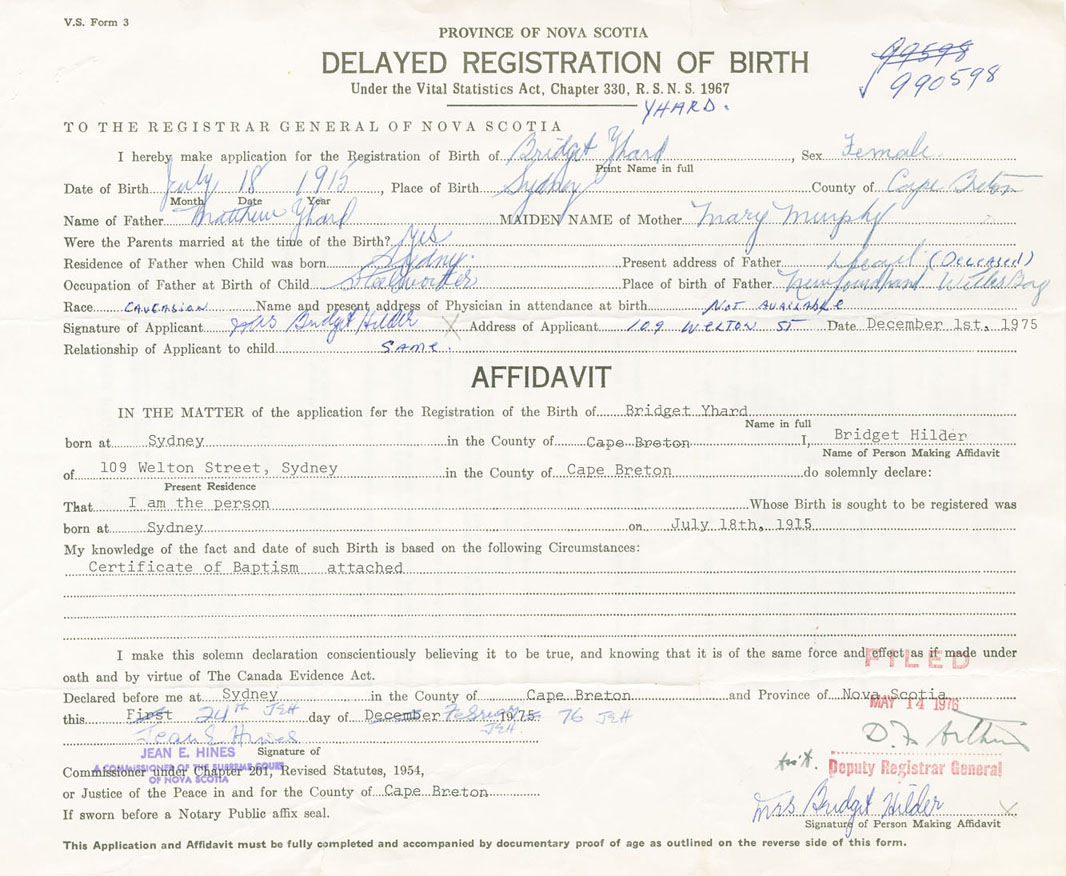 V.S. Form 3
PROVINCE OF NOVA SCOTIA
DELAYED REGISTRATION OF BIRTH
99598
990598
Under the Vital Statistics Act, Chapter 330, R.S.N.S. 1967
YHARD.
TO THE REGISTRAR GENERAL OF NOVA SCOTIA
I hereby make application for the Registration of Birth of Bridget Yhard, Sex Female.
Print Name in full
Date of Birth July 18 1915, Place of Birth Sydney County of Cape Breton
Month Date Year
Name of Father Matthew Yhard MAIDEN NAME of Mother Mary Murphy
Were the Parents married at the time of the Birth? Yes
Residence of Father when Child was born Sydney. Present address of Father (Deceased)
Occupation of Father at Birth of Child Steelworker Place of birth of Father Newfoundland Witless Bay
Race CAUCASION Name and present address of Physician in attendance at birth NOT AVAILABLE
Signature of Applicant Mrs Bridget Hilder X Address of Applicant 109 WELTON ST Date December 1st, 1975
Relationship of Applicant to child SAME.
AFFIDAVIT
IN THE MATTER of the application for the Registration of the Birth of Bridget Yhard
Name in full
born at Sydney in the County of Cape Breton I, Bridget Hilder
Name of Person Making Affidavit
of 109 Welton Street, Sydney in the County of Cape Breton do solemnly declare:
Present Residence
That I am the person Whose Birth is sought to be registered was
born at Sydney on July 18th, 1915
My knowledge of the fact and date of such Birth is based on the following Circumstances:
Certificate of Baptism attached
I make this solemn declaration conscientiously believing it to be true, and knowing that it is of the same force and effect as if made under
FILED
oath and by virtue of The Canada Evidence Act.
Declared before me at Sydney in the County of Cape Breton and Province of Nova Scotia
MAY 14 1976
this First 24th JEH day of December February 1975 76 JEH
JEH
Jean E Hines
JEAN E. HINES Signature of
A COMMISSIONER OF THE SUPREME COURT
OF NOVA SCOTIA
Commissioner under Chapter 201, Revised Statutes, 1954,
Deputy Registrar General
or Justice of the Peace in and for the County of Cape Breton
Mrs Bridget Hilder X
If sworn before a Notary Public affix seal.
Signature of Person Making Affidavit
This Application and Affidavit must be fully completed and accompanied by documentary proof of age as outlined on the reverse side of this form.